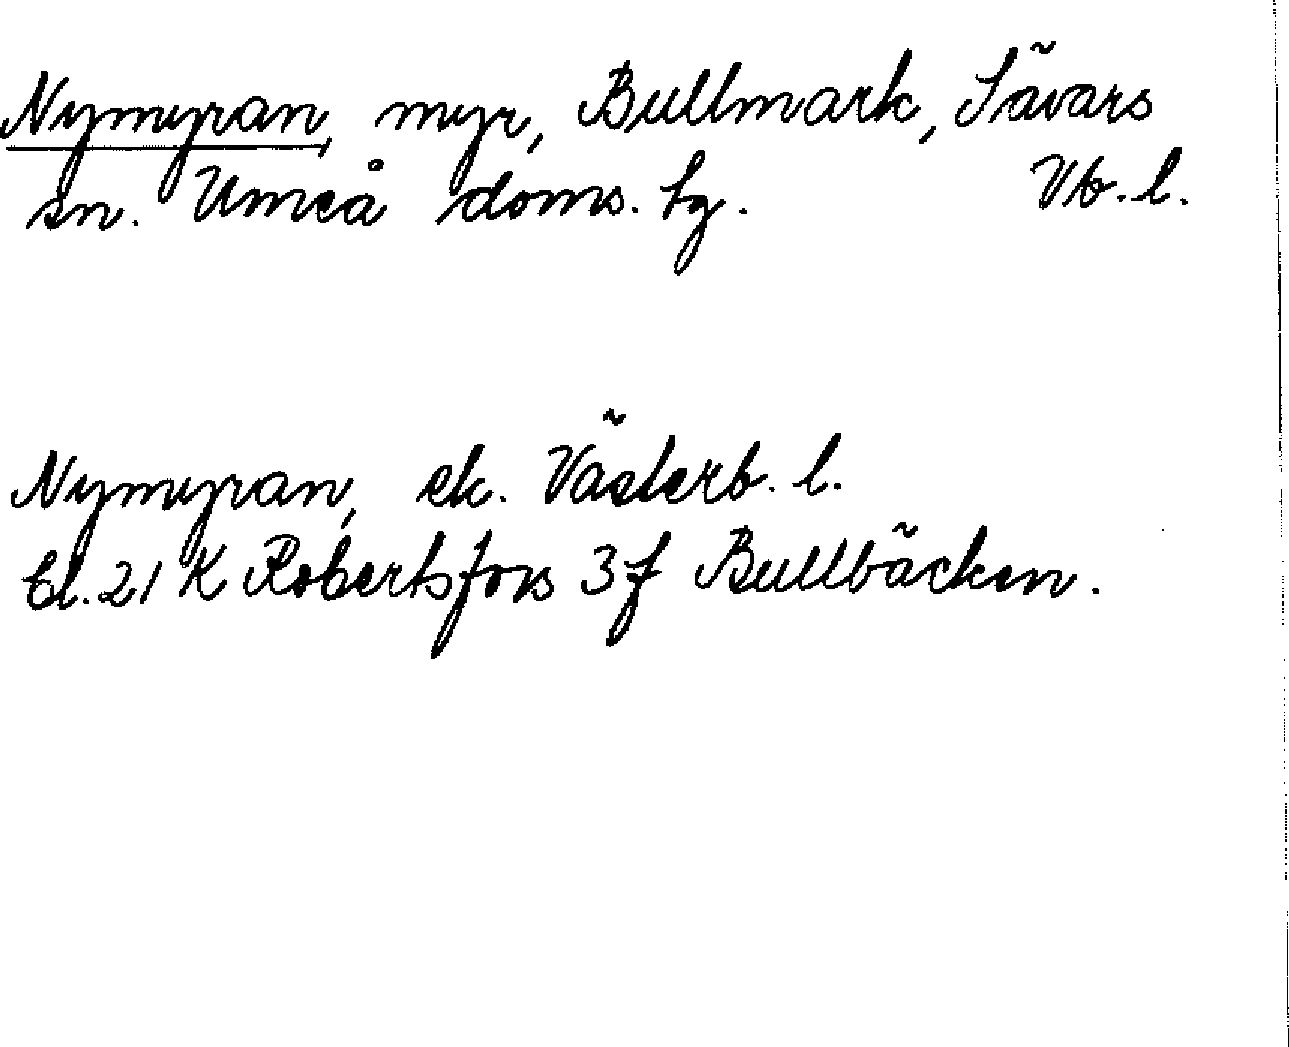 Nymyran, myr, Bullmark, Sävars
sn. Umeå doms. tg. Vb. l.
Nymyran, ek. Västerb. l.
bl. 21 K Robertsfors 3f Bullbäcken.